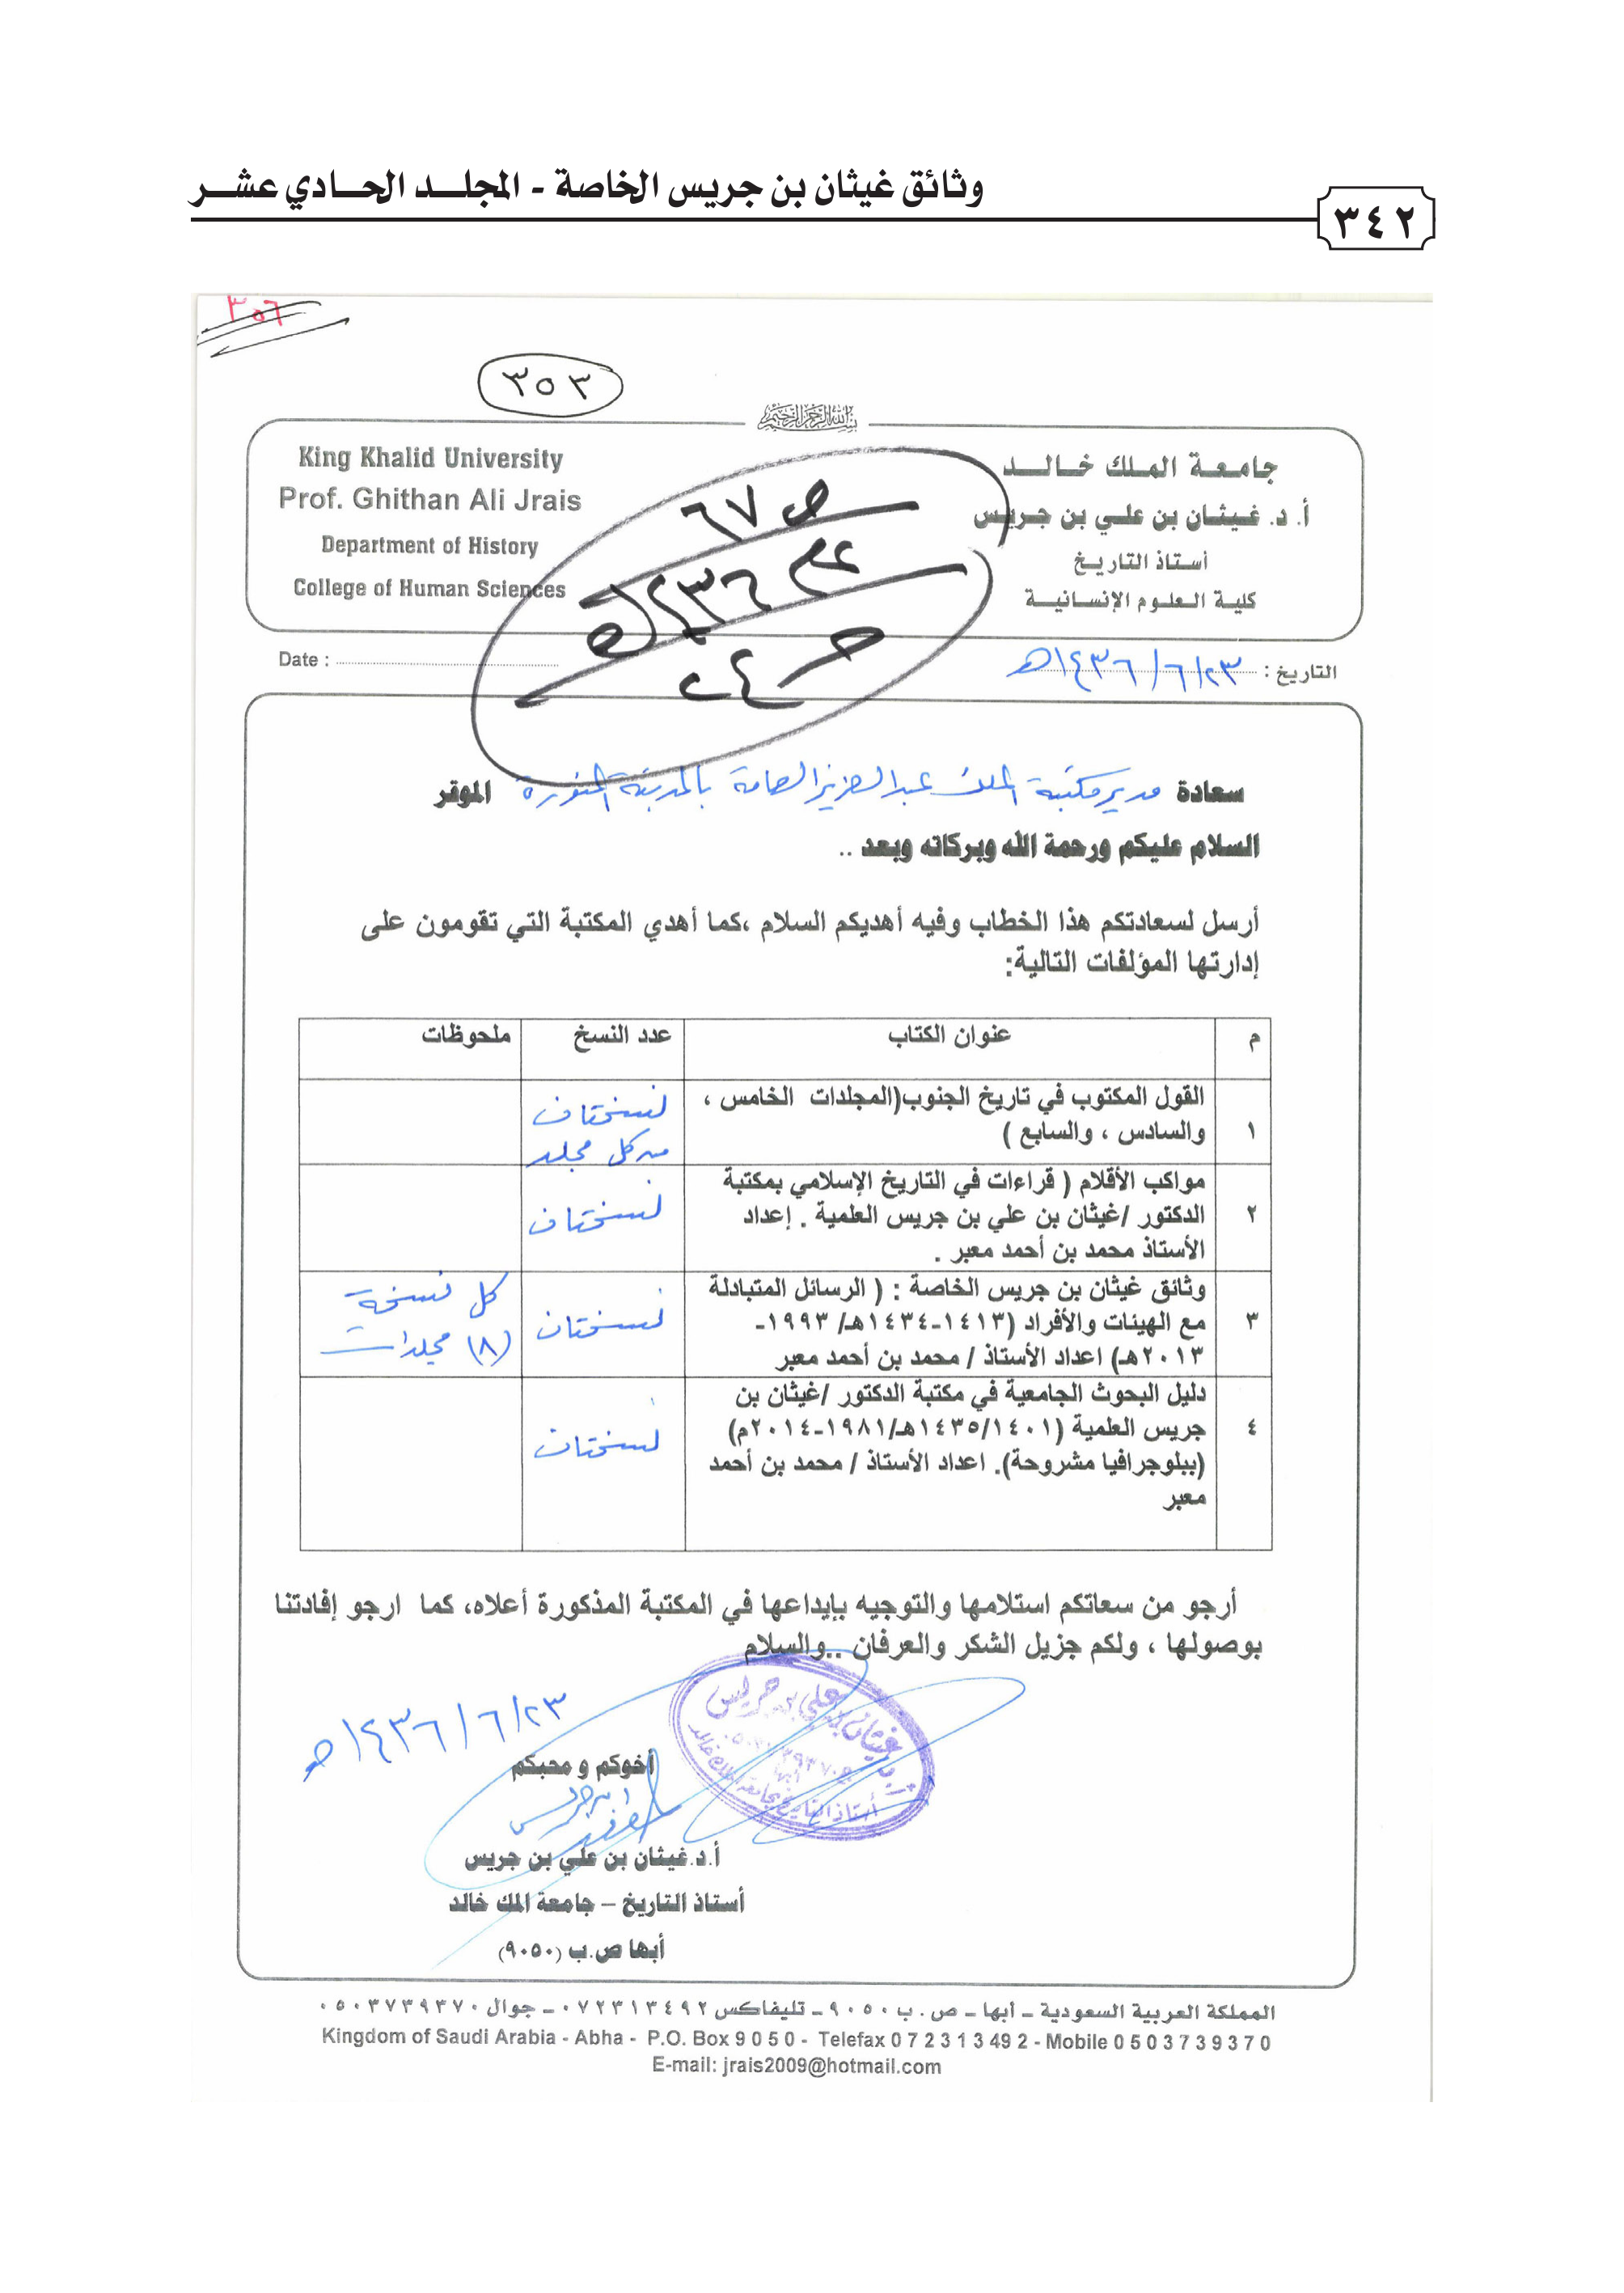 وثائق غيثان بن جريس الخاصة - المجلـــد الحـــادي عشـــر
٣٤٢
٣٥٦
٣٥٣
بسم الله الرحمن الرحيم
King Khalid University
Prof. Ghithan Ali Jrais
Department of History
College of Human Sciences
جامعة الملك خالد
أ. د. غيثان بن علي بن جريس
أستاذ التاريخ
كلية العلوم الإنسانية
ص ٦٧
Date :
التاريخ : ١٤٣٦/٦/٢٣هـ
سعادة مدير مكتبة الملك عبدالعزيز العامة بالمدينة المنورة الموقر
السلام عليكم ورحمة الله وبركاته وبعد ..
أرسل لسعادتكم هذا الخطاب وفيه أهديكم السلام ،كما أهدي المكتبة التي تقومون على
إدارتها المؤلفات التالية:
م عنوان الكتاب عدد النسخ ملحوظات
١ القول المكتوب في تاريخ الجنوب(المجلدات الخامس ،
والسادس ، والسابع )
نسختان
من كل مجلد
٢ مواكب الأقلام ( قراءات في التاريخ الإسلامي بمكتبة
الدكتور /غيثان بن علي بن جريس العلمية . إعداد
الأستاذ محمد بن أحمد معبر .
نسختان
٣ وثائق غيثان بن جريس الخاصة : ( الرسائل المتبادلة
مع الهيئات والأفراد (١٤١٣-١٤٣٤هـ/ ١٩٩٣-
٢٠١٣هـ) اعداد الأستاذ / محمد بن أحمد معبر
نسختان
كل نسخة
(٨) مجلدات
٤ دليل البحوث الجامعية في مكتبة الدكتور /غيثان بن
جريس العلمية (١٤٣٥/١٤٠١هـ/١٩٨١-٢٠١٤م)
(ببلوجرافيا مشروحة). اعداد الأستاذ / محمد بن أحمد
معبر
نسختان
أرجو من سعاتكم استلامها والتوجيه بإيداعها في المكتبة المذكورة أعلاه، كما ارجو إفادتنا
بوصولها ، ولكم جزيل الشكر والعرفان ..والسلام
١٤٣٦/٦/٢٣هـ
غيثان بن علي بن جريس
أستاذ التاريخ بجامعة الملك خالد
أخوكم و محبكم
أ.د.غيثان بن علي بن جريس
أستاذ التاريخ – جامعة الملك خالد
أبها ص.ب (٩٠٥٠)
المملكة العربية السعودية – أبها – ص . ب ٩٠٥٠ – تليفاكس ٠٧٢٣١٣٤٩٢ – جوال ٠٥٠٣٧٣٩٣٧٠
Kingdom of Saudi Arabia - Abha - P.O. Box 9 0 5 0 - Telefax 0 7 2 3 1 3 49 2 - Mobile 0 5 0 3 7 3 9 3 7 0
E-mail: jrais2009@hotmail.com